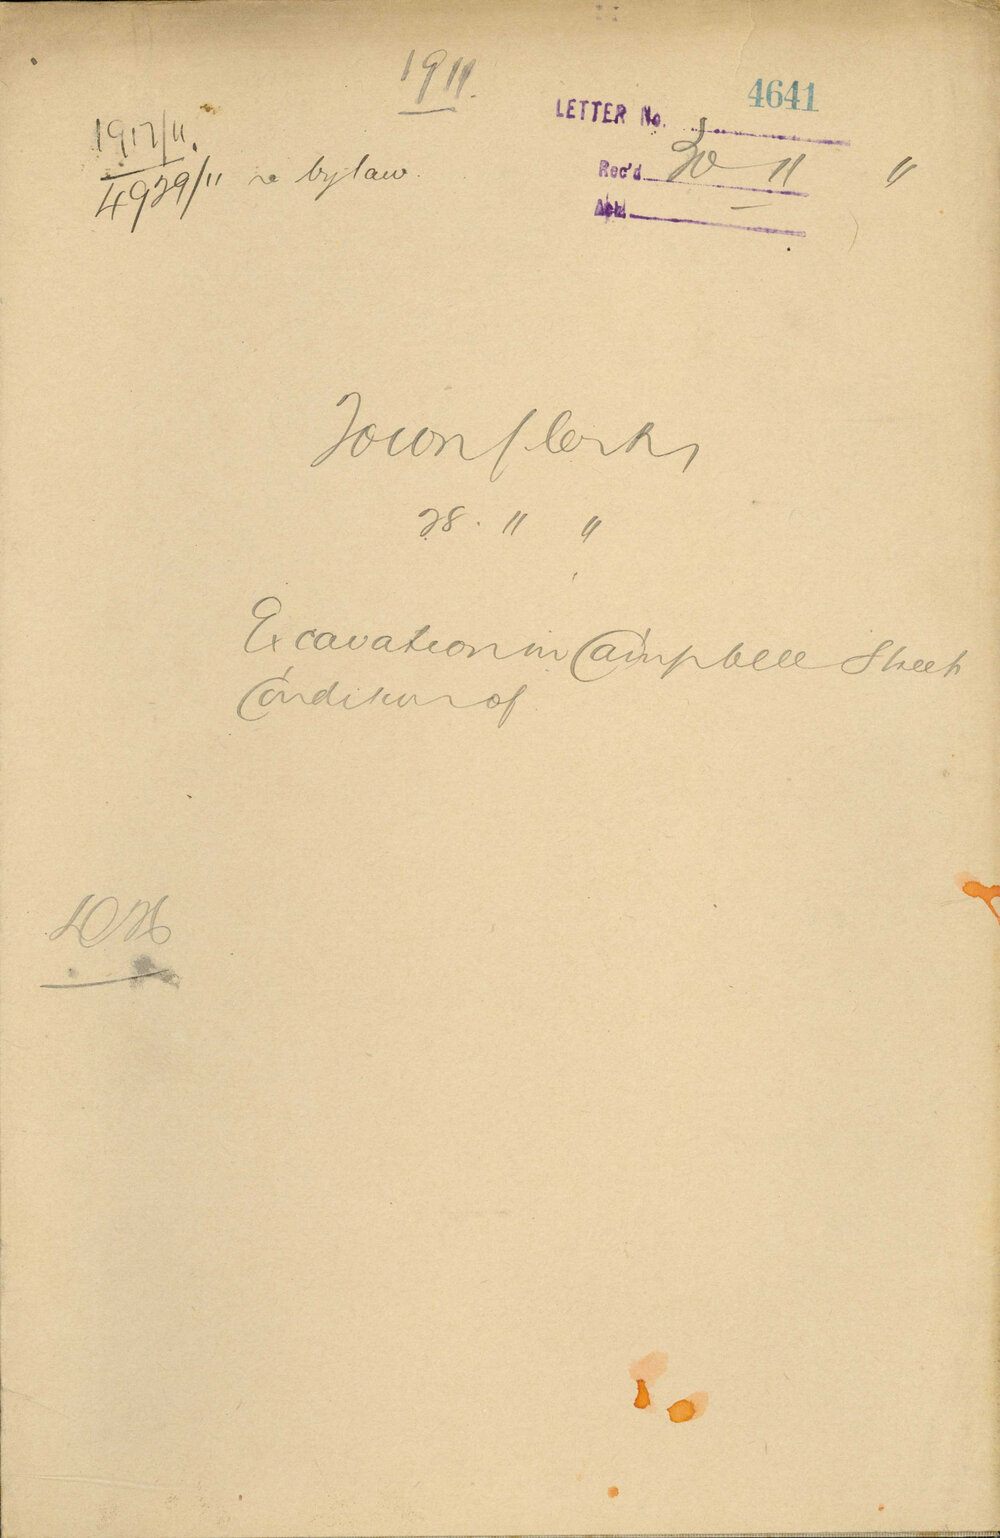 1911.
LETTER No. 4641
1917/11.
4929/11 re bylaw.
Rec'd 30 11 "
Town Clerk,
28. 11 "
Excavation in Campbell Street
Condition of